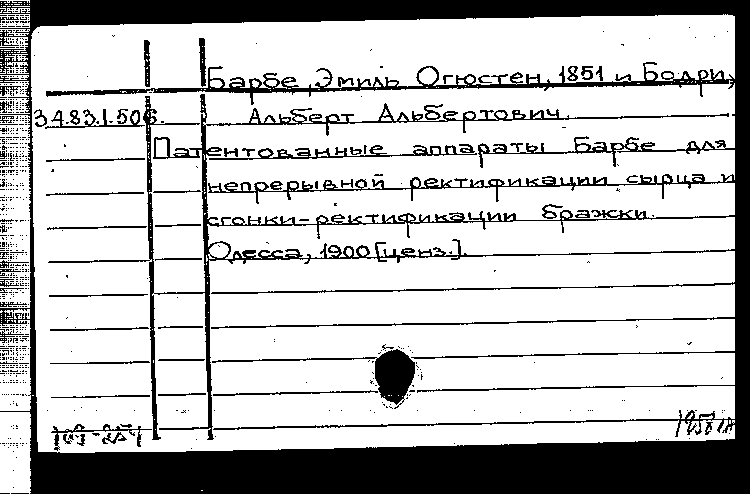 Барбе, Эмиль Огюстен, 1851 и Бодри,
34.83.1.506. Альберт Альбертович.
Патентованные аппараты Барбе для
непрерывной ректификации сырца и
сгонки-ректификации бражки.
Одесса, 1900 [ценз.].